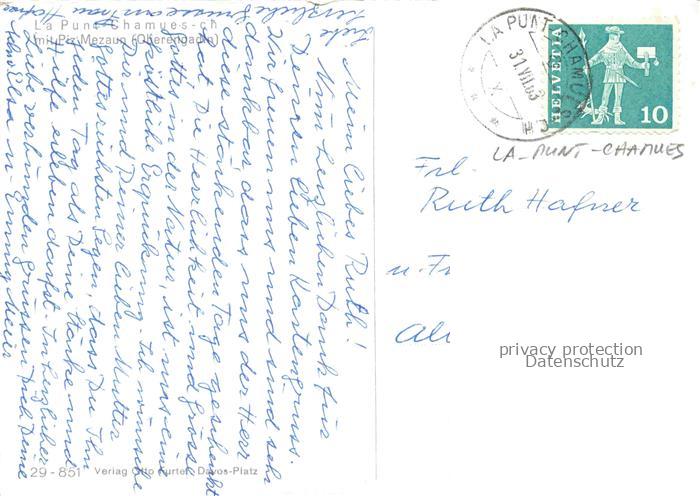 La Punt Chamues-ch
mit Piz Mezaun (Oberengadin)
Mein liebes Ruth!
Vom herzlichen Dank für
Deinen lieben Kartengruss.
Wir freuen uns und sind sehr
dankbar dass uns der Herr
diese stärkenden Tage geschenkt
hat. Die Herrlichkeit und Grösse
Gottes in der Natur, ist uns eine
köstliche Erquickung. Ich wünsche
Dir und Deiner lieben Mutter
Gottes reichsten Segen, dass Du Ihn
jeden Tag als Deine Stärke und
Hilfe erleben darfst. In herzlicher
Liebe verbunden grüssen Dich Deine
Elsa u. Emmy Meier
Herzliche Grüsse
29 - 851 Verlag Otto Furter, Davos-Platz
LA PUNT-CHAMUES
31.VII.63
X
HELVETIA
10
LA-PUNT-CHAMUES
Frl.
Ruth Hafner
u. Fr
privacy protection
Datenschutz